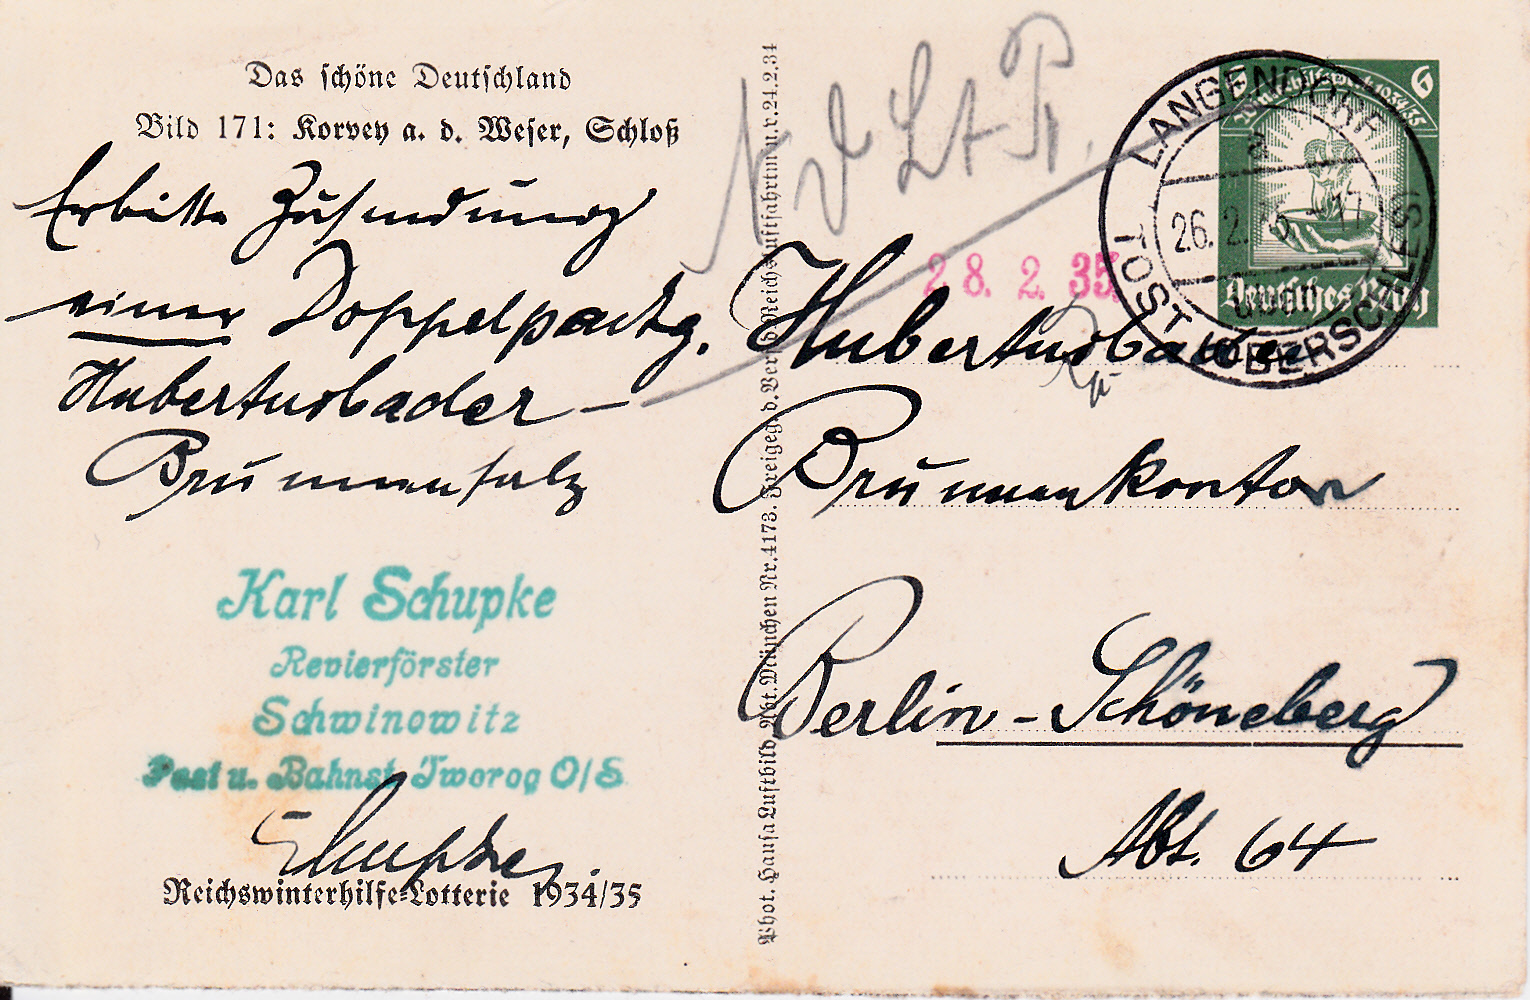 Das schöne Deutschland
Bild 171: Korvey a. d. Weser, Schloß
Erbitte Zusendung
einer Doppelpackg.
Hubertusbader
Brunnensalz
Karl Schupke
Revierförster
Schwinowitz
Post u. Bahnst. Tworog O/S
Schupke.
Reichswinterhilfe-Lotterie 1934/35
Phot. Hansa Luftbild, Abt. München Nr. 4173. Freigeg. d. Verf. d. Reichsluftfahrtm. v. 24.2.34
28. 2. 35.
LANGENDORF
a
26. 2. 35 - 17
TOST (OBERSCHLES)
6
1934/35
Deutsches Reich
Hubertusbader
Brunnenkontor
Berlin-Schöneberg
Abt. 64